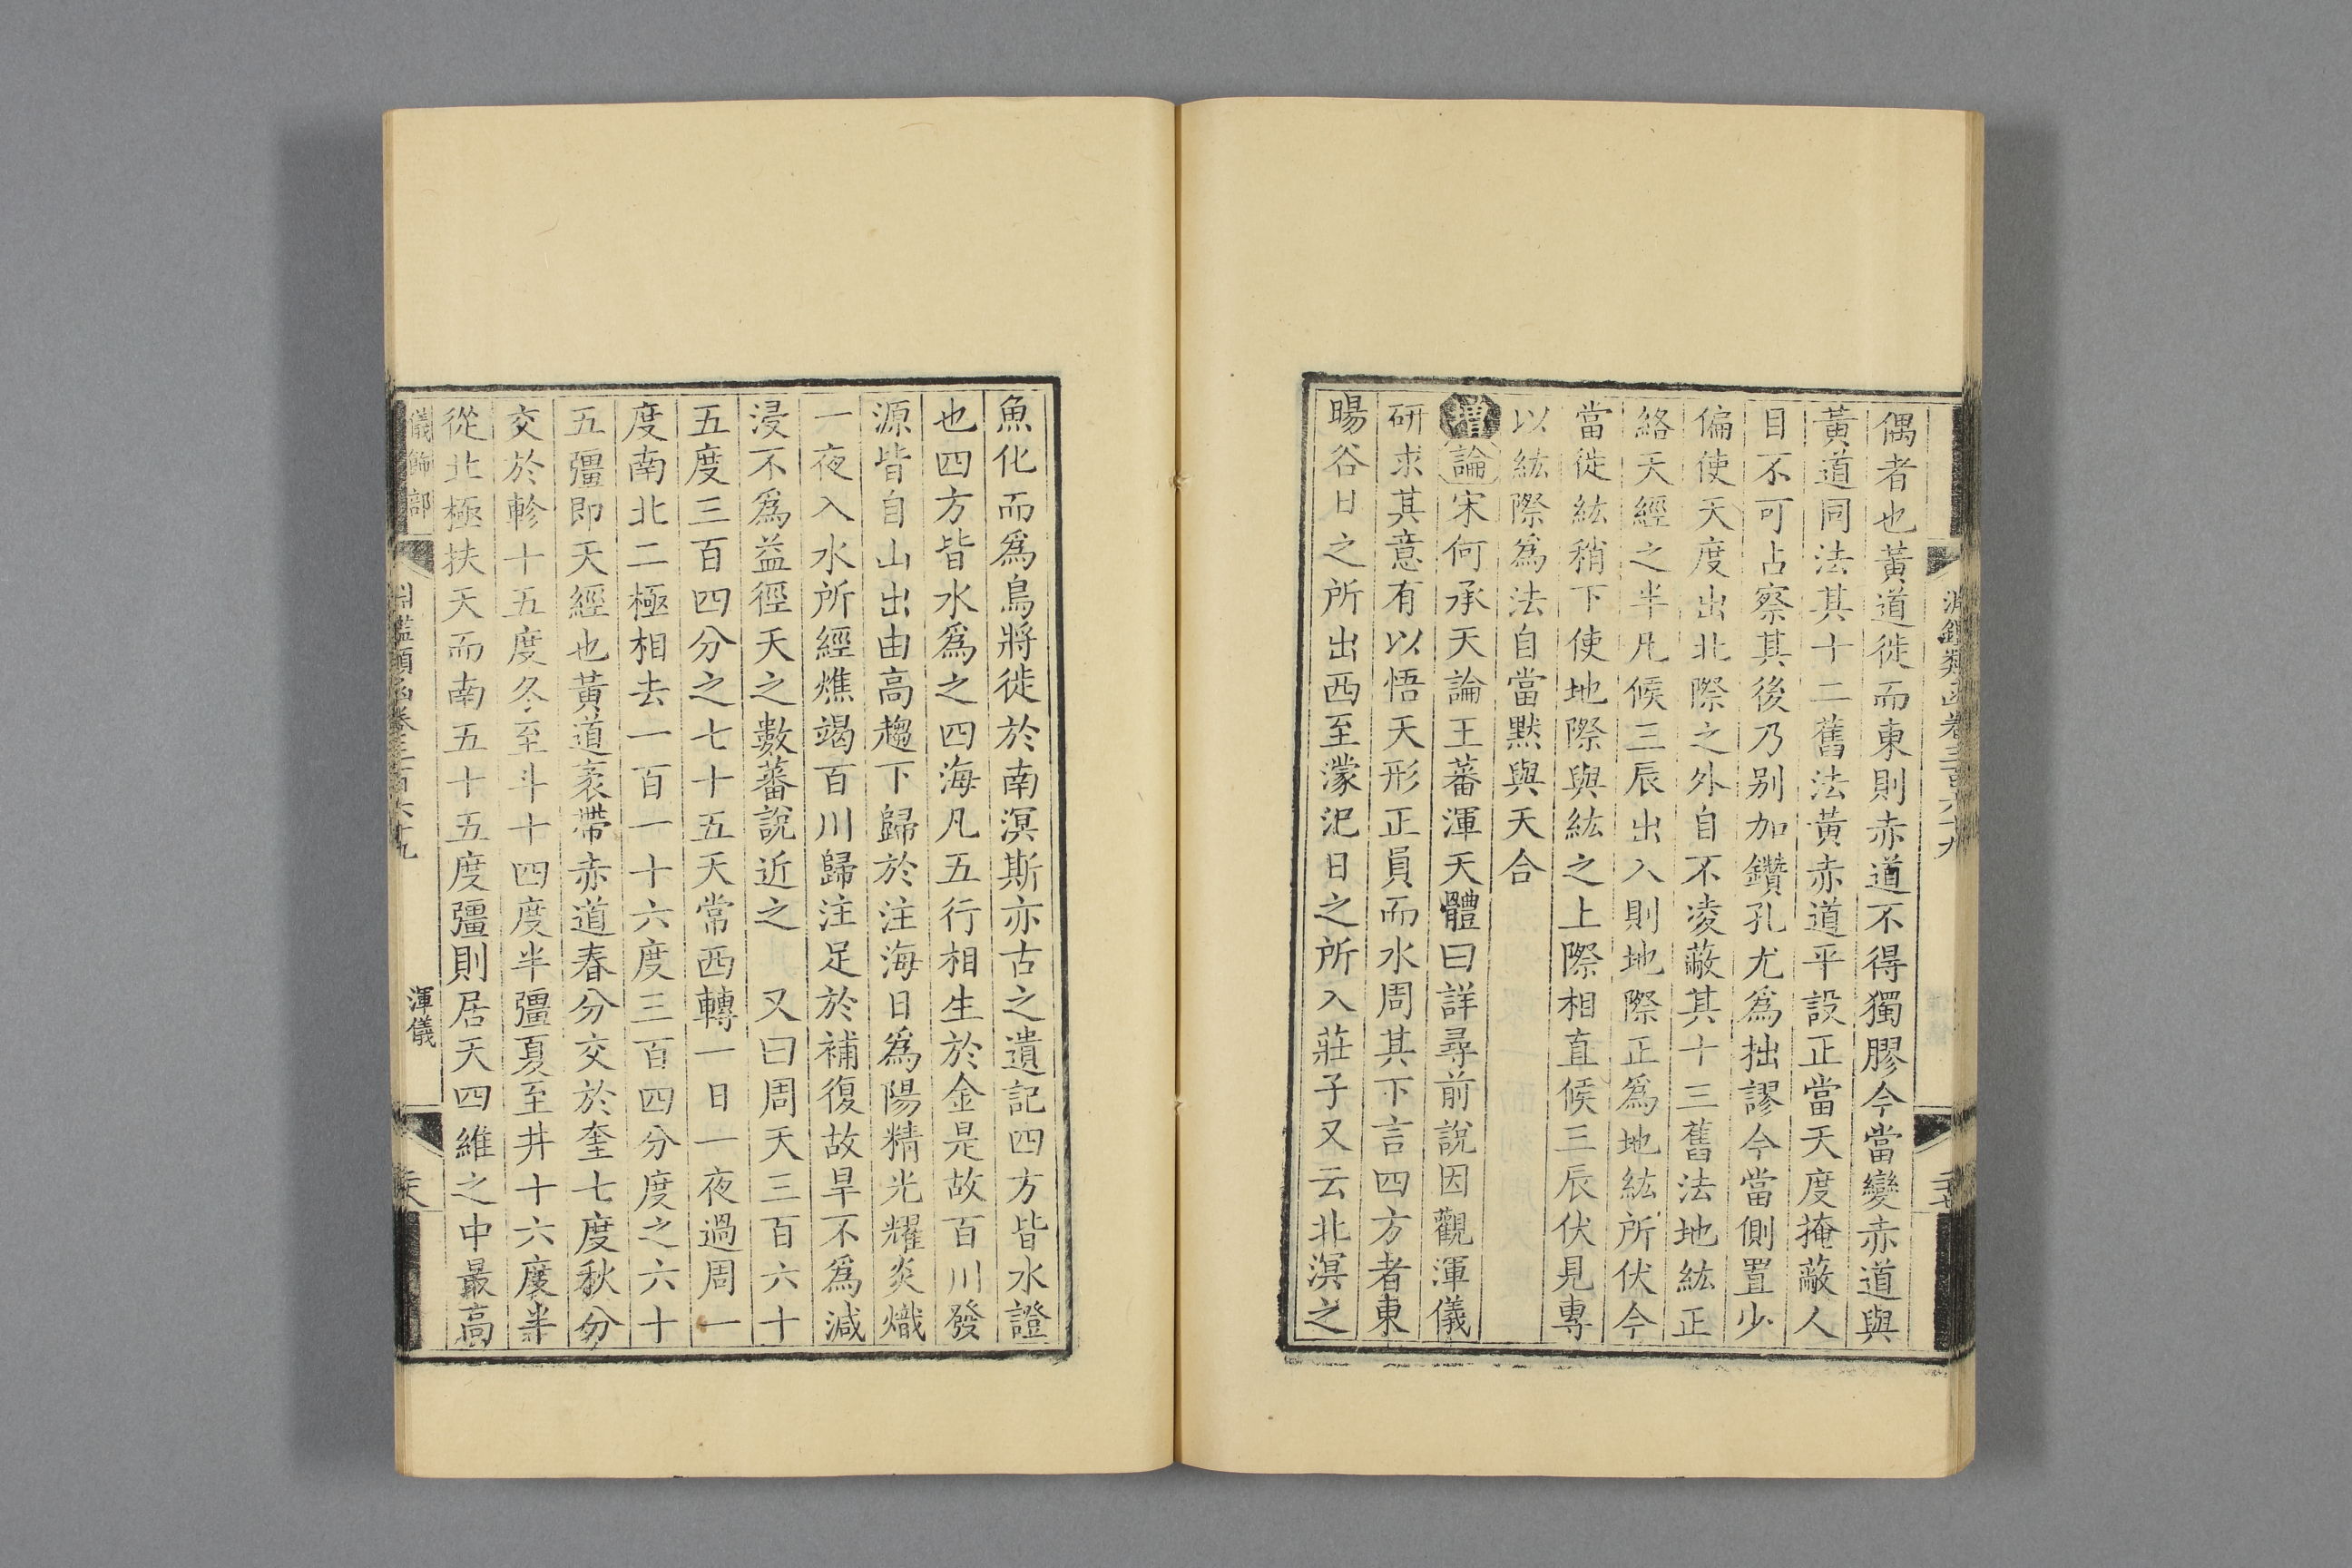 淵鑑類函卷三百六十九
偶者也黃道徙而東則赤道不得獨膠今當變赤道與
黃道同法其十二舊法黃赤道平設正當天度掩蔽人
目不可占察其後乃别加鑽孔尤爲拙謬今當側置少
偏使天度出北際之外自不凌蔽其十三舊法地紘正
絡天經之半凡候三辰出入則地際正爲地紘所伏今
當徙紘稍下使地際與紘之上際相直候三辰伏見專
以紘際爲法自當默與天合
增論宋何承天論王蕃渾天體曰詳尋前說因觀渾儀
研求其意有以悟天形正員而水周其下言四方者東
暘谷日之所出西至濛汜日之所入莊子又云北溟之
魚化而爲鳥將徙於南溟斯亦古之遺記四方皆水證
也四方皆水爲之四海凡五行相生於金是故百川發
源皆自山出由高趨下歸於注海日爲陽精光耀炎熾
一夜入水所經燋竭百川歸注足於補復故旱不爲減
浸不爲益徑天之數蕃說近之 又曰周天三百六十
五度三百四分之七十五天常西轉一日一夜過周一
度南北二極相去一百一十六度三百四分度之六十
五彊即天經也黃道袤帶赤道春分交於奎七度秋分
交於軫十五度冬至斗十四度半彊夏至井十六度半
從北極扶天而南五十五度彊則居天四維之中最高
儀飾部 淵鑑類函卷三百六十九 渾儀